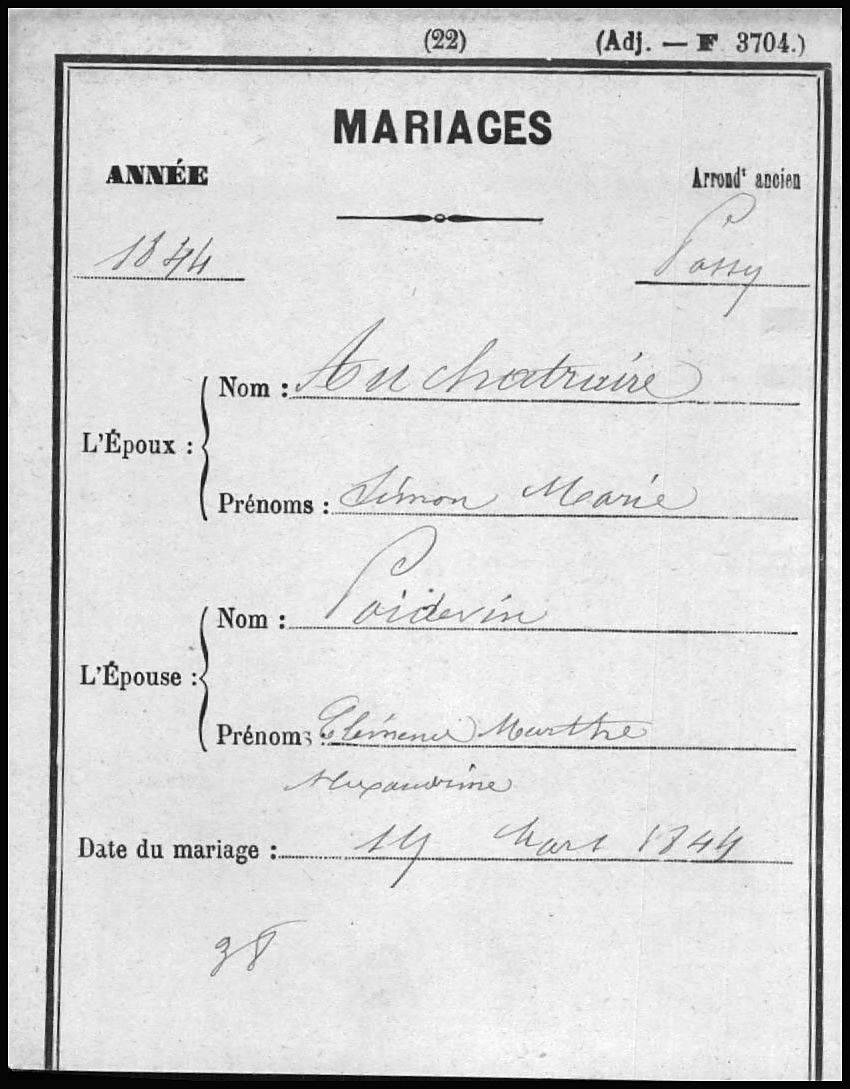 (22) (Adj. — F 3704.)
MARIAGES
ANNÉE Arrondt ancien
1844 Passy
L'Époux :
Nom : Auchatraire
Prénoms : Simon Marie
L'Épouse :
Nom : Poidevin
Prénoms : Clémence Marthe
Alexandrine
Date du mariage : Mars 1844
38